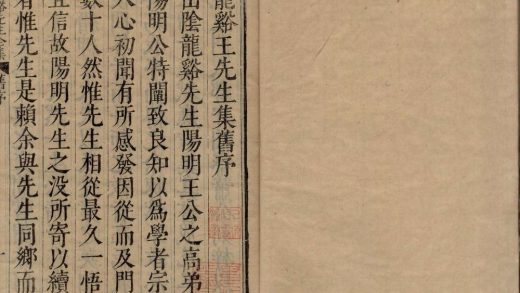 龍谿王先生集舊序
山陰龍谿先生陽明王公之高弟
陽明公特闡致良知以為學者宗
人心初聞有所感發因從而及門
數十人然惟先生相從最久一悟
且信故陽明先生之没所寄以續
者惟先生是賴余與先生同鄉而
舊序